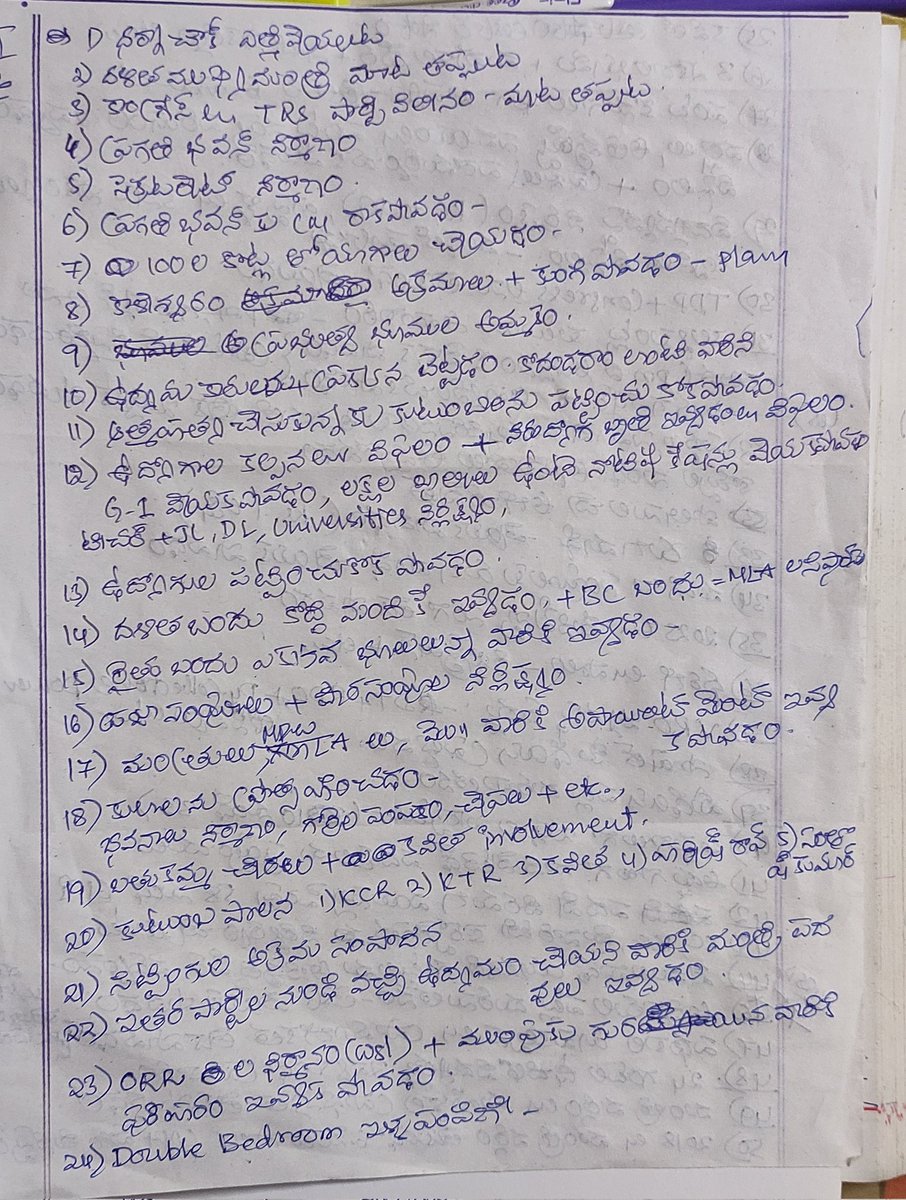 1) ధర్నా చౌక్ ఎత్తి వేయుట
2) దళిత ముఖ్యమంత్రి మాట తప్పుట
3) కాంగ్రేస్ లు TRS పార్టీ విలీనం - మాట తప్పుట.
4) ప్రగతి భవన్ నిర్మాణం
5) సెక్రటరియేట్ నిర్మాణం.
6) ప్రగతి భవన్ కు రాకపోవడం -
7) 100 ల కోట్ల తో యాగాలు చేయడం -
8) కాళేశ్వరం అక్రమాలు + కుంగి పోవడం - plan
9) ప్రభుత్వ భూముల అమ్మకం.
10) ఉద్యమ కారులను + ప్రక్కన పెట్టడం. కోదండరాం లాంటి వారిని
11) ఆత్మహత్య చేసుకున్నాకు కుటుంబాలను పట్టించు కోకపోవడం.
12) ఉద్యోగాల కల్పనలు విఫలం + నిరుద్యోగ భృతి ఇవ్వడంలు విఫలం.
G-1 వేయకపోవడం, లక్షల ఖాళీలు ఉంటే నోటిఫికేషన్లు వేయకపోవడం
టీచర్ + JL, DL, Universities నిర్లక్ష్యం,
13) ఉద్యోగుల పట్టించుకోక పోవడం.
14) దళిత బందు కొద్ది మందికే ఇవ్వడం, + BC బంధు = MLA
15) రైతు బందు ఎక్కువ భూములున్న వారికి ఇవ్వడం -
16) ప్రజా సంఘాలు + పౌరసంఘాల నిర్లక్ష్యం.
17) మంత్రులు MLA లు, మొ॥ వారికి అపాయింట్ మెంట్ ఇవ్వ
కపోవడం.
18) కులాలను ప్రోత్సహించడం -
భవనాలు నిర్మాణం, గొర్రెల పంపకం, చేపలు + etc.,
19) బతుకమ్మ చీరలు + కవిత involvement.
20) కుటుంబ పాలన 1) KCR 2) KTR 3) కవిత 4) హరీష్ రావ్ 5) సంతో
ష్ కుమార్
21) సిట్టింగుల అక్రమ సంపాదన
22) ఇతర పార్టీల నుండి వచ్చి ఉద్యమం చేయని వారికి మంత్రి పద
వులు ఇవ్వడం.
23) ORR ల నిర్మానం + మలుపుకు వారికి
పరిహారం ఇవ్వక పోవడం.
24) Double Bedroom ఇళ్ల పంపిణీ -